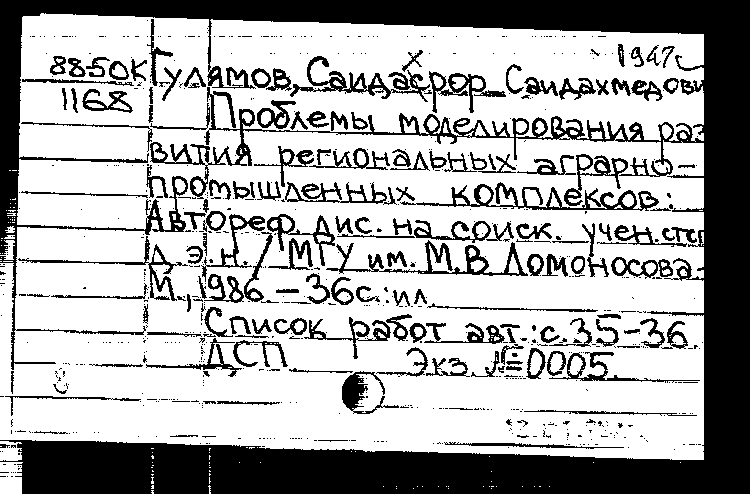 1947
88-50К Гулямов, Саидасрор Саидахмедови
1168 Проблемы моделирования раз
вития региональных аграрно-
промышленных комплексов:
Автореф. дис. на соиск. учен. степ
д.э.н. / МГУ им. М.В Ломоносова-
М., 1986. - 36с.: ил.
Список работ авт.: с.35-36.
ДСП Экз. №0005.
8